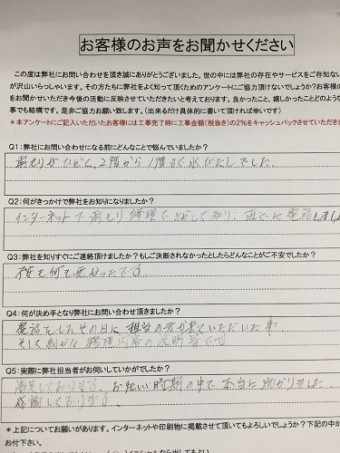 お客様のお声をお聞かせください
この度は弊社にお問い合わせを頂き誠にありがとうございました。世の中には弊社の存在やサービスをご存知ない
が沢山いらっしゃいます。その方たちに弊社をよく知って頂くためのアンケートにご協力頂けないでしょうか？お客様の
をお聞かせいただき今後の活動に反映させていただきたいと考えております。良かったこと、嬉しかったことどのような
事でも結構です。是非ご協力お願い致します。（出来るだけ具体的に書いて頂ければ幸いです）
＊本アンケートにご記入いただいたお客様には工事完了時に工事金額（税抜き）の2％をキャッシュバックさせていただき
Q1：弊社にお問い合わせになる前にどんなことで悩んでいましたか？
雨もりがひどく、2階から1階まで水びたしでした。
Q2：何がきっかけで弊社をお知りになりましたか？
インターネットで雨もり修理でさがしており、直ぐに電話しまし
Q3：弊社を知りすぐにご連絡頂けましたか？もしご決断されなかったとしたらどんなことがご不安でしたか？
Q4：何が決め手となり弊社にお問い合わせ頂きましたか？
電話をしたその日に担当の方が来ていただいた事。
そして細かな修理内容の説明等です
Q5：実際に弊社担当者がお伺いしていかがでしたか？
満足しております。お忙しい時期の中で本当に助かりました。
感謝しております。
＊上記についてお願いがあります。インターネットや印刷物に掲載させて頂いてもよろしいでしょうか？下記の中か
お付下さい。